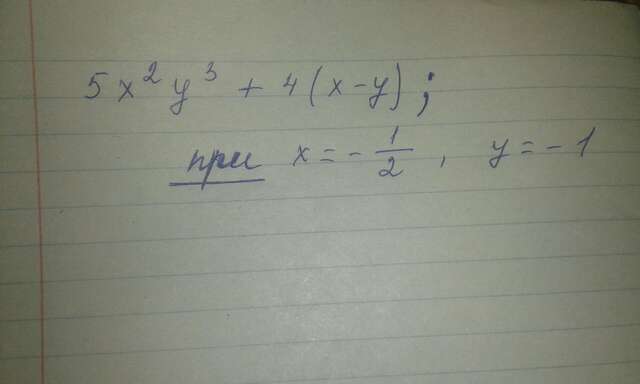 5x²y³ + 4(x-y);
при x = -1/2, y = -1